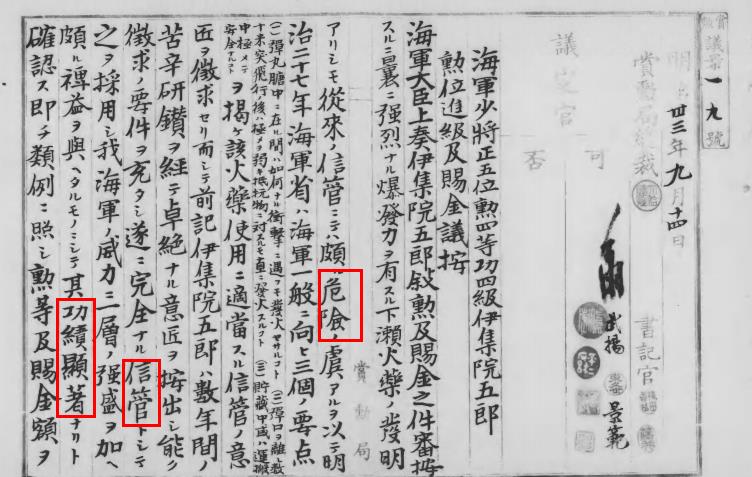 賞勲局
議第一九號
明治卅三年九月十四日
賞勲局総裁
書記官
武揚
景範
議定官
可
否
海軍少将正五位勲四等功四級伊集院五郎
勲位進級及賜金議按
海軍大臣上奏伊集院五郎敍勲及賜金之件審按
スルニ曩ニ强烈ナル爆發力ヲ有スル下瀬火藥ノ發明
賞勲局
アリシモ從來ノ信管ニテハ頗ル危險ノ虞アルヲ以テ明
治二十七年海軍省ハ海軍一般ニ向ヒ三個ノ要点
(一)彈丸膅中ニ在ル間ハ如何ナル衝擊ニ遇フモ發火セサルコト (二)彈口ヲ離レ數
十米突飛行ノ後ハ極メテ弱キ抵抗物ニ対スルモ直ニ發火スルコト (三)貯藏中或ハ運搬
中極メテ安全ナルコト
ヲ揭ケ該火藥使用ニ適當スル信管ノ意
匠ヲ徴求セリ而シテ前記伊集院五郎ハ數年間ノ
苦辛研鑽ヲ経テ卓絶ナル意匠ヲ按出シ能ク
徴求ノ要件ヲ充タシ遂ニ完全ナル信管トシテ
之ヲ採用シ我海軍ノ威力ニ一層ノ强盛ヲ加ヘ
頗ル裨益ヲ與ヘタルモノニシテ其功績顯著ナリト
確認ス即チ類例ニ照シ勲等及賜金額ヲ